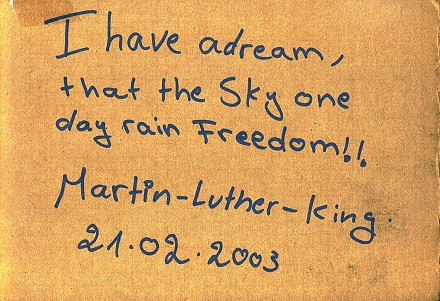 I have adream,
that the Sky one
day rain Freedom!!
Martin-Luther-King.
21.02.2003